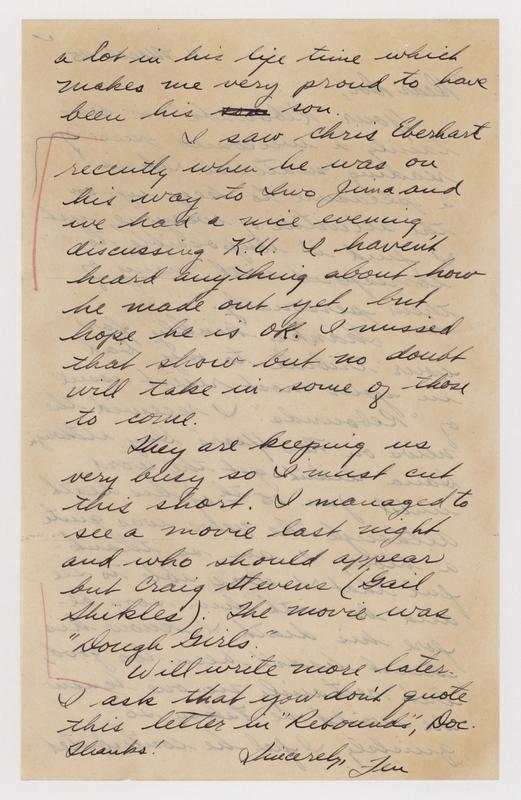 a lot in his life time which
makes me very proud to have
been his son.
I saw Chris Eberhart
recently when he was on
his way to Iwo Jima and
we had a nice evening
discussing K.U. I haven't
heard anything about how
he made out yet, but
hope he is OK. I missed
that show but no doubt
will take in some of those
to come.
They are keeping us
very busy so I must cut
this short. I managed to
see a movie last night
and who should appear
but Craig Stevens (Gail
Shikles). The movie was
"Dough Girls."
Will write more later.
I ask that you don't quote
this letter in "Rebounds", Doc.
Thanks!
Sincerely,